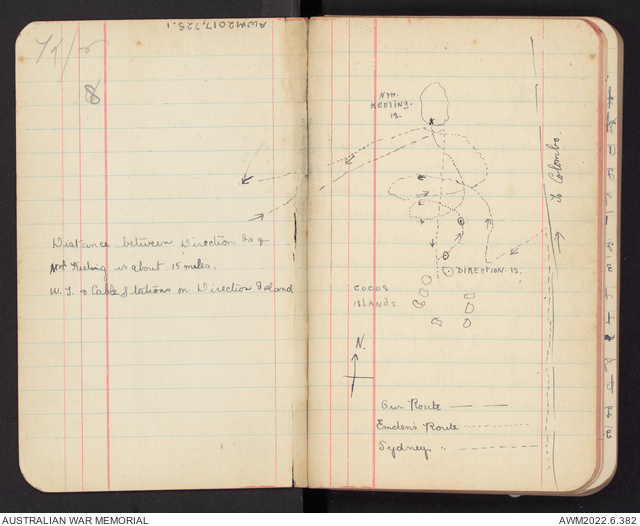 AWM2017.725.1
8
Distance between Direction Is &
Nth Keeling is about 15 miles.
W.T. & Cable Stations on Direction Island
NTH.
KEELING.
IS.
to Colombo.
DIRECTION IS.
COCOS
ISLANDS.
N.
Our Route
Emden's Route
Sydney "
AUSTRALIAN WAR MEMORIAL
AWM2022.6.382